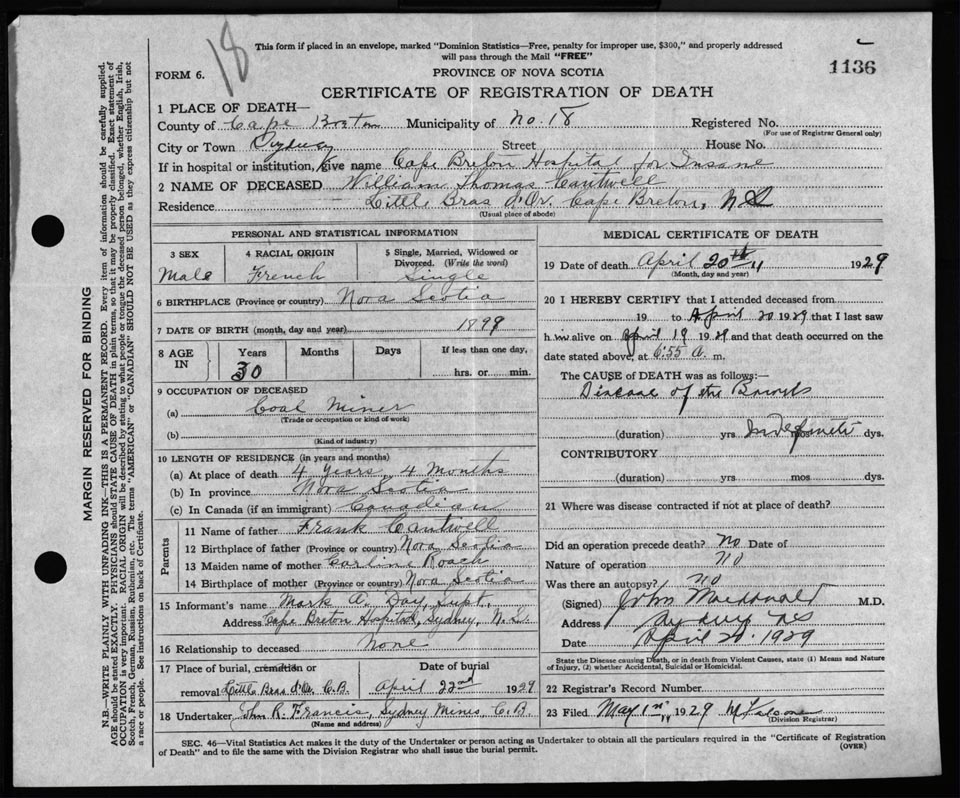 18
This form if placed in an envelope, marked "Dominion Statistics—Free, penalty for improper use, $300," and properly addressed
will pass through the Mail "FREE"
1136
FORM 6.
PROVINCE OF NOVA SCOTIA
CERTIFICATE OF REGISTRATION OF DEATH
1 PLACE OF DEATH—
County of Cape Breton Municipality of No. 18 Registered No.
(For use of Registrar General only)
City or Town Sydney Street House No.
If in hospital or institution, give name Cape Breton Hospital for Insane
2 NAME OF DECEASED William Thomas Cantwell
Residence Little Bras d'Or, Cape Breton, NS
(Usual place of abode)
PERSONAL AND STATISTICAL INFORMATION
3 SEX 4 RACIAL ORIGIN 5 Single, Married, Widowed or
Divorced. (Write the word)
Male French Single
6 BIRTHPLACE (Province or country) Nova Scotia
7 DATE OF BIRTH (month, day and year) 1899
8 AGE IN Years Months Days If less than one day,
30 hrs. or min.
9 OCCUPATION OF DECEASED
(a) Coal Miner
(Trade or occupation or kind of work)
(b)
(Kind of industry)
10 LENGTH OF RESIDENCE (in years and months)
(a) At place of death 4 Years, 4 Months
(b) In province Nova Scotia
(c) In Canada (if an immigrant) Canadian
Parents
11 Name of father Frank Cantwell
12 Birthplace of father (Province or country) Nova Scotia
13 Maiden name of mother Roach
14 Birthplace of mother (Province or country) Nova Scotia
15 Informant's name Mark A. Day, Supt.
Address Cape Breton Hospital, Sydney, N.S.
16 Relationship to deceased None
17 Place of burial, cremation or Date of burial
removal Little Bras d'Or, C.B. April 22nd 1929
18 Undertaker Jhn R. Francis, Sydney Mines, C.B.
(Name and address)
MEDICAL CERTIFICATE OF DEATH
19 Date of death April 20th 1929
(Month, day and year)
20 I HEREBY CERTIFY that I attended deceased from
19 to April 20 1929 that I last saw
him alive on April 19 1929 and that death occurred on the
date stated above, at 6:55 a. m.
The CAUSE of DEATH was as follows:—
Disease of the Bowels
(duration) yrs Indefinite mos dys.
CONTRIBUTORY
(duration) yrs mos dys.
21 Where was disease contracted if not at place of death?
Did an operation precede death? No Date of
Nature of operation No
Was there an autopsy? no
(Signed) John Macdonald M.D.
Address Sydney NS
Date April 20. 1929
State the Disease causing Death, or in death from Violent Causes, state (1) Means and Nature
of Injury, (2) whether Accidental, Suicidal or Homicidal.
22 Registrar's Record Number
23 Filed May 1st 1929
(Division Registrar)
SEC. 46—Vital Statistics Act makes it the duty of the Undertaker or person acting as Undertaker to obtain all the particulars required in the "Certificate of Registration
of Death" and to file the same with the Division Registrar who shall issue the burial permit.
(OVER)
MARGIN RESERVED FOR BINDING
N.B.—WRITE PLAINLY WITH UNFADING INK—THIS IS A PERMANENT RECORD. Every item of information should be carefully supplied.
AGE should be stated EXACTLY. PHYSICIANS should STATE CAUSE OF DEATH in plain terms, so that it may be properly classified. Exact statement of
OCCUPATION is very important. RACIAL ORIGIN will be described by stating to what people or tongue the deceased person belonged, whether English, Irish,
Scotch, French, German, Russian, Ruthenian, etc. The terms "AMERICAN" or "CANADIAN" SHOULD NOT BE USED as they express citizenship but not
a race or people. See instructions on back of Certificate.